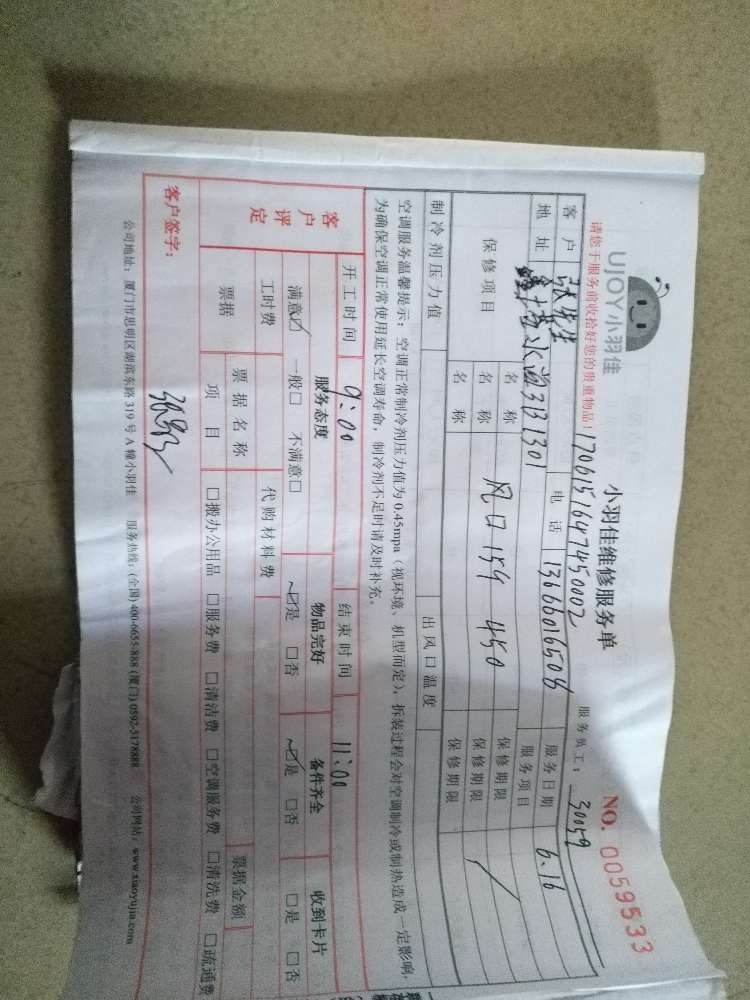 UJOY小羽佳
小羽佳维修服务单
NO. 0059533
请您于服务前收拾好您的贵重物品:
1706151647450002
服务员工: 30059
客户 张先生 电话 13666016504 服务日期 6.16
地址 331301 服务项目
保修项目 名称 保修期限
名称 风口 159 450 保修期限
名称 保修期限
制冷剂压力值 出风口温度
空调服务温馨提示: 空调正常制冷剂压力值为0.45mpa (视环境、机型而定), 拆装过程会对空调制冷或制热造成一定影响,
为确保空调正常使用延长空调寿命, 制冷剂不足时请及时补充。
开工时间 9:00 结束时间 11:00
客户评定
服务态度 物品完好 备件齐全 收到卡片
满意☑ 一般□ 不满意□ ☑是 □否 ☑是 □否 □是 □否
工时费 代购材料费
票据 票据名称 票据金额
项目 □搬办公用品 □服务费 □清洁费 □空调服务费 □清洗费 □疏通费
客户签字:
公司地址: 厦门市思明区湖滨东路319号A幢小羽佳 服务热线: (全国) 400-6655-888 (厦门) 0592-5178888 公司网站: www.xiaoyujia.com